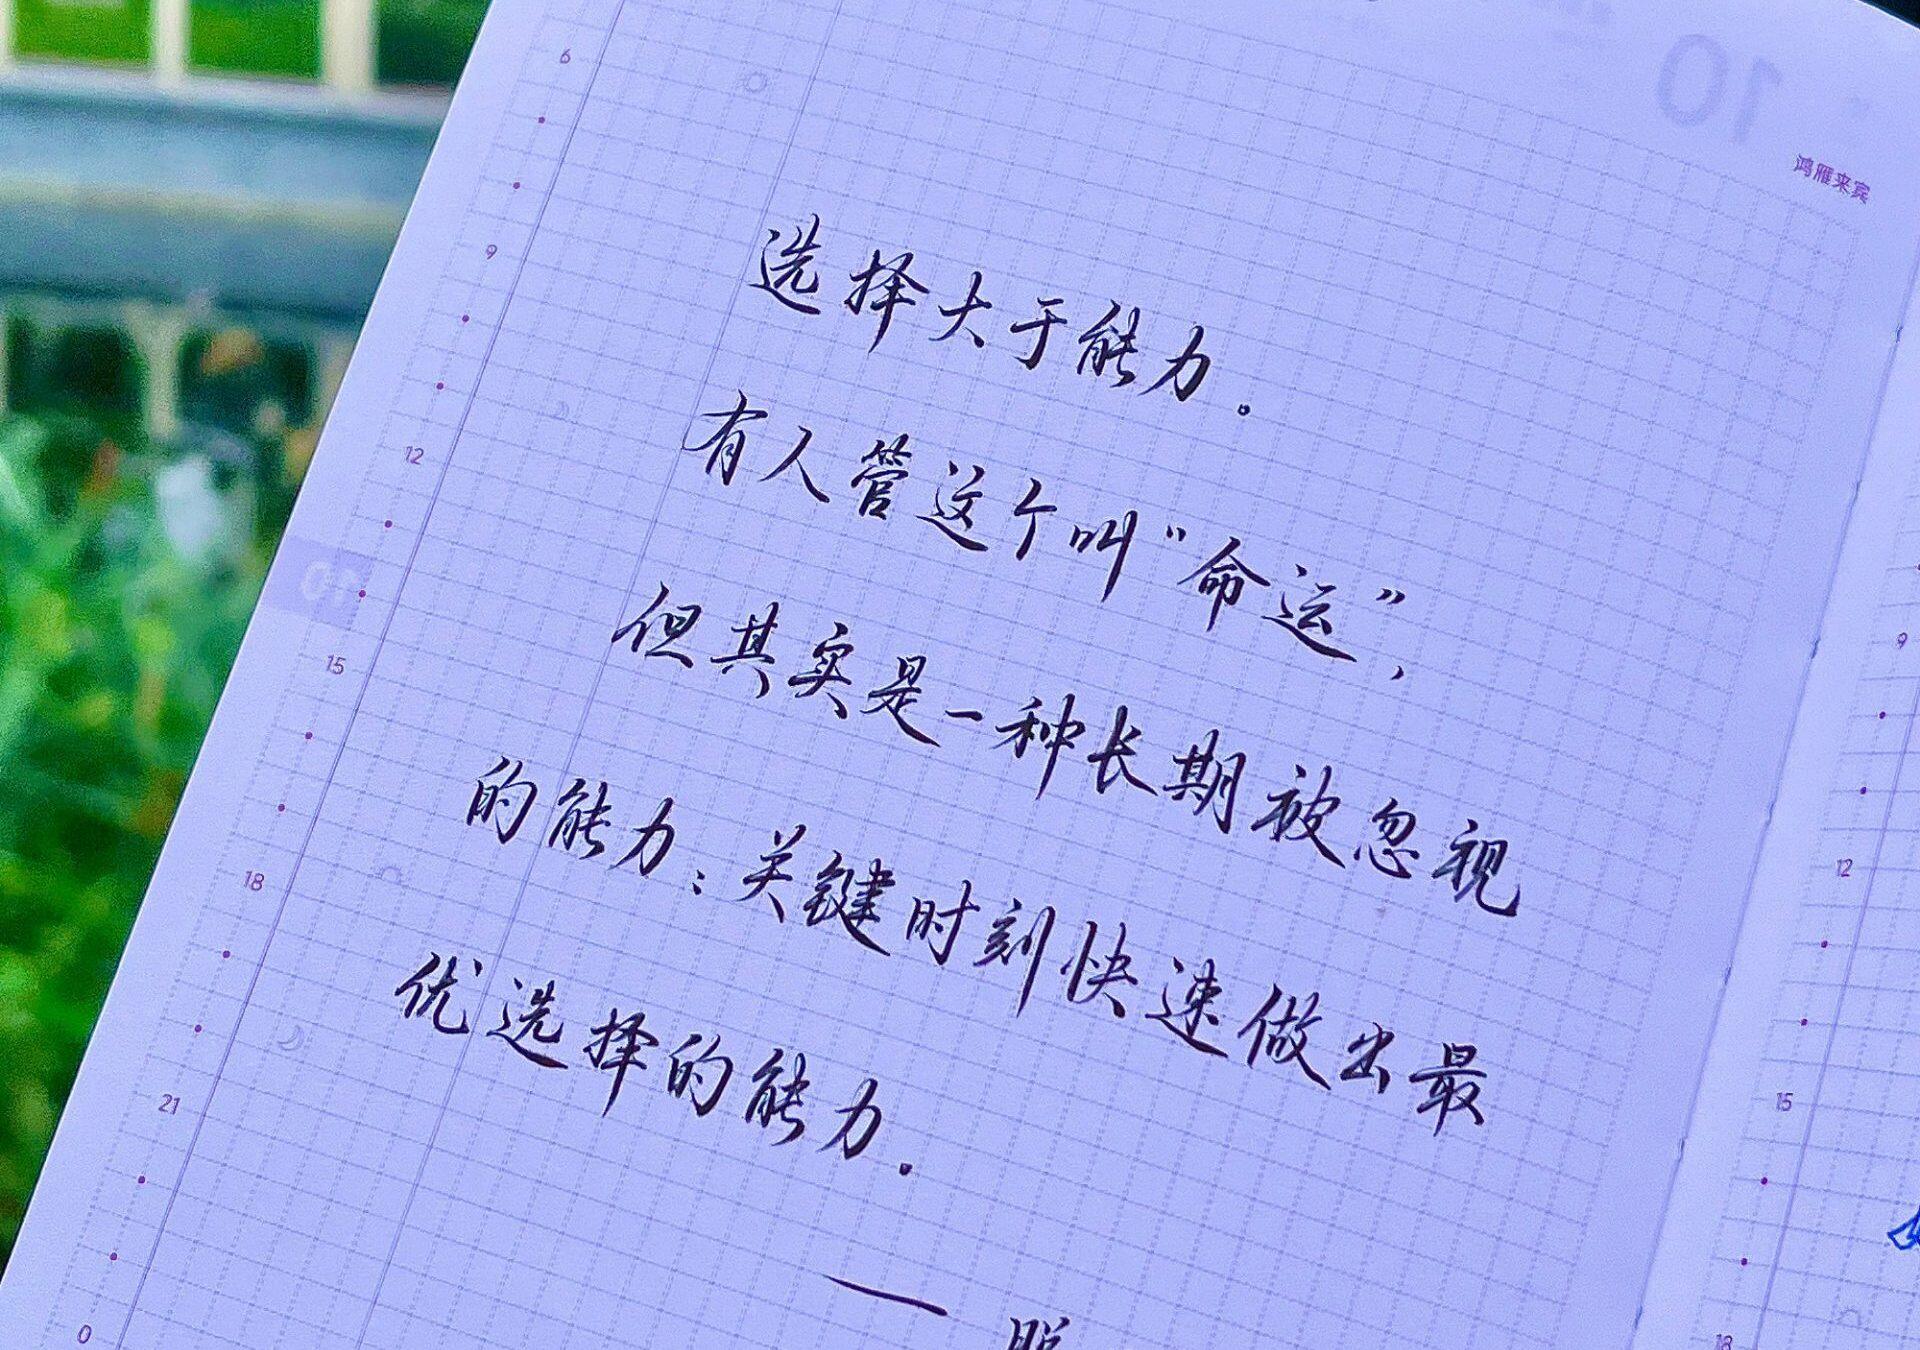 10
鸿雁来宾
6
选择大于能力。
9
有人管这个叫“命运”，
12
但其实是一种长期被忽视
10
15
的能力：关键时刻快速做出最
18
优选择的能力。
21
0
9
12
15
18